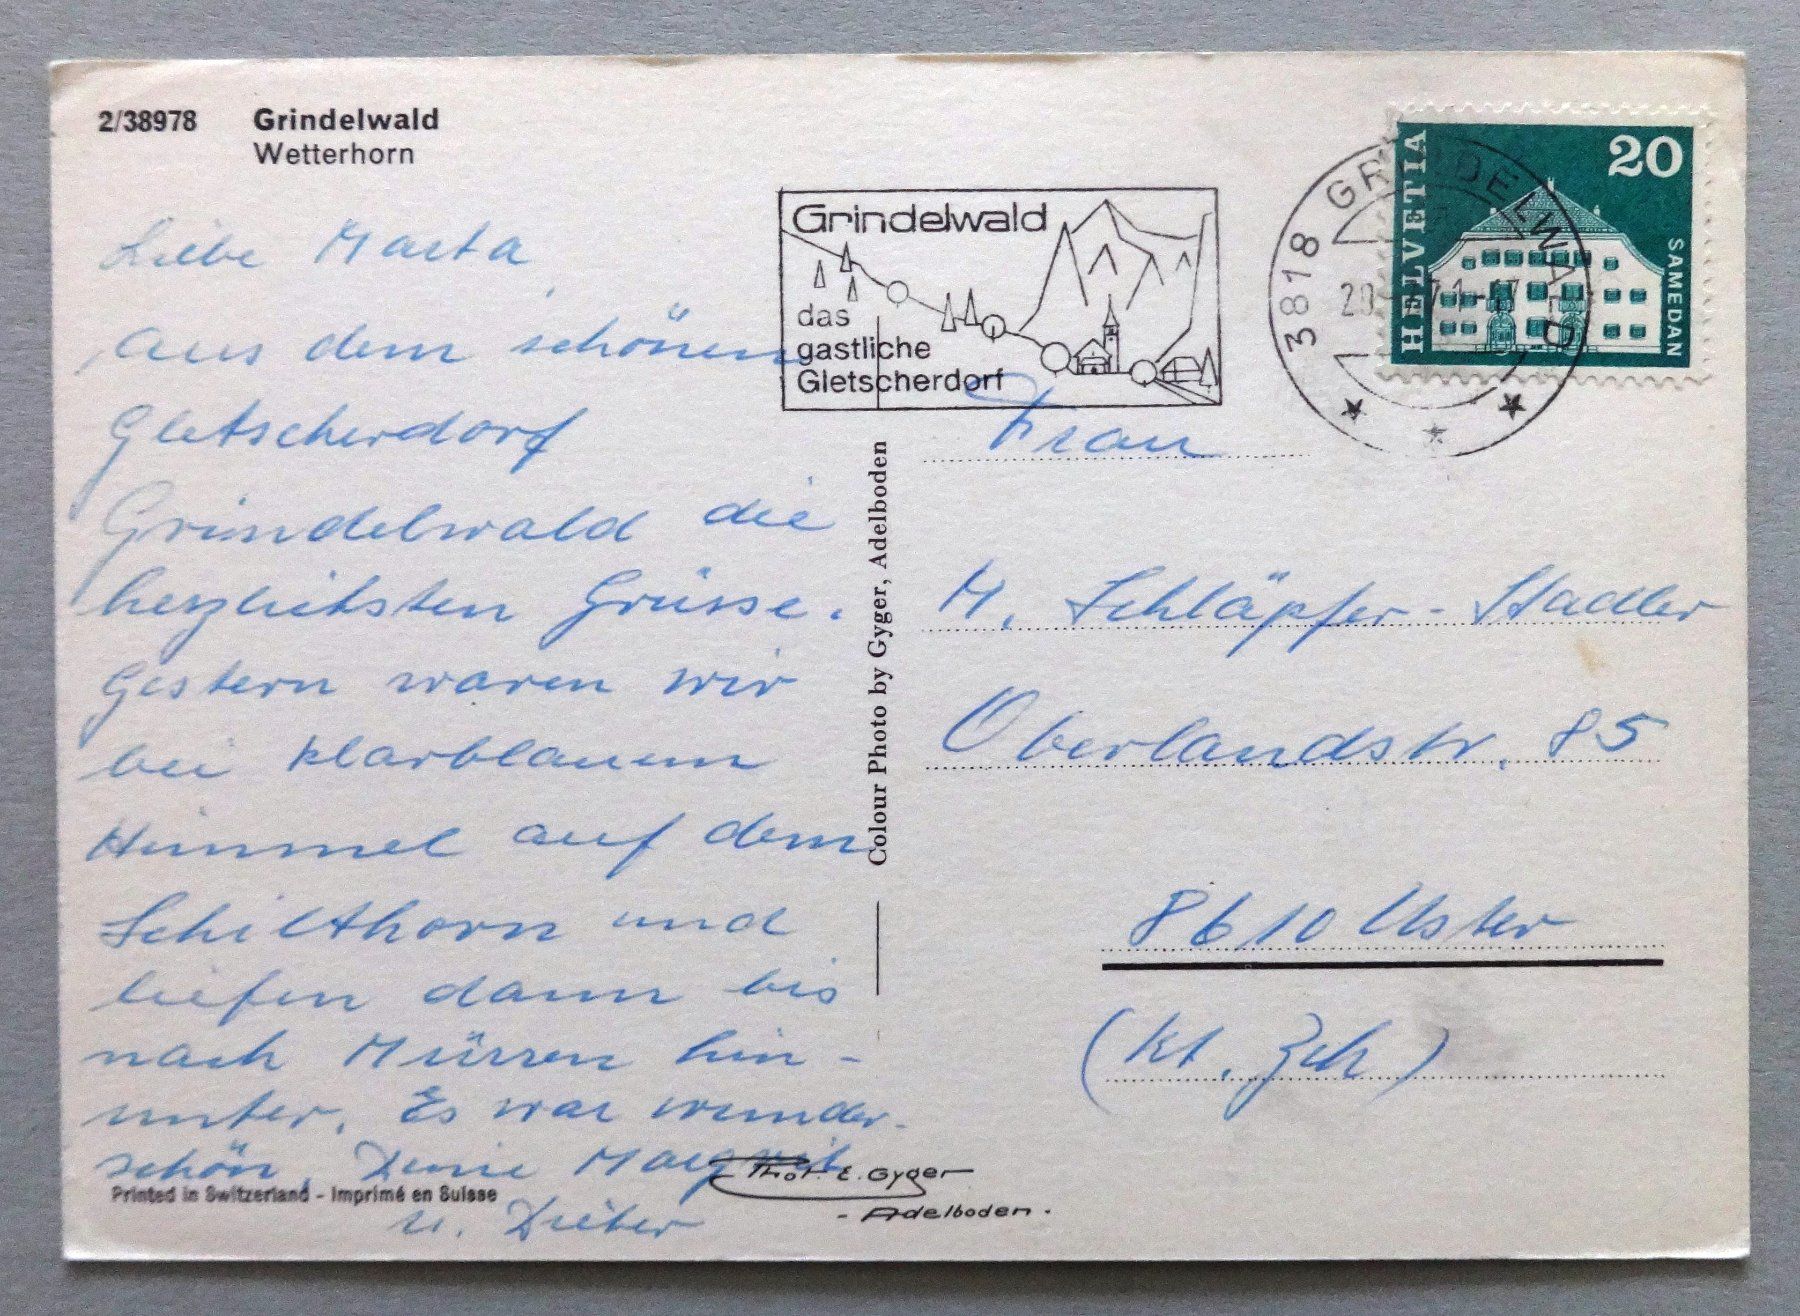 2/38978 Grindelwald
Wetterhorn
Liebe Marta
aus dem schönen
Gletscherdorf
Grindelwald die
herzlichsten Grüsse.
Gestern waren wir
bei klarblauem
Himmel auf dem
Schilthorn und
liefen dann bis
nach Mürren hin-
unter. Es war wunder-
schön. Deine Margrit
u. Dieter
Printed in Switzerland - Imprimé en Suisse
Phot. E. Gyger
- Adelboden -
Colour Photo by Gyger, Adelboden
Grindelwald
das
gastliche
Gletscherdorf
3818 GRINDELWALD
HELVETIA
20
SAMEDAN
Frau
M. Schläpfer-Stadler
Oberlandstr. 85
8610 Uster
(Kt. Zch)